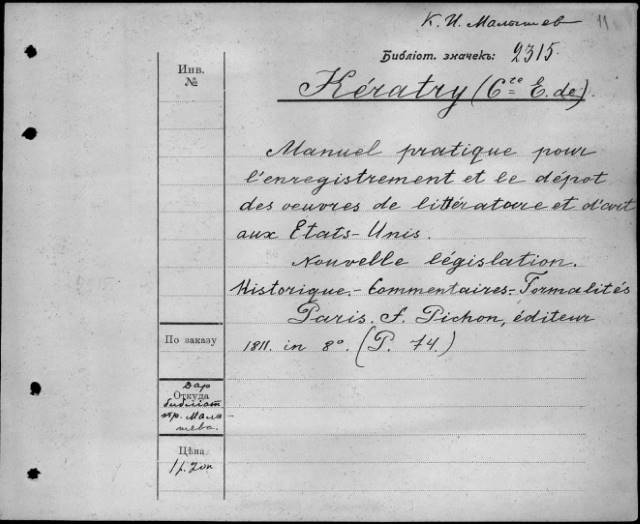 К. И. Малышев 11
Библіот. значекъ: 2315
Инв.
№
Kératry (Cte E. de).
Manuel pratique pour
l'enregistrement et le dépot
des oeuvres de littérature et d'art
aux Etats-Unis.
Nouvelle législation.
Historique.-Commentaires-Formalités
Paris. F. Pichon, éditeur
По заказу
1811. in 8°. (P. 74.)
Дар
Откуда
библіот
пр. Малы
шева.
Цѣна